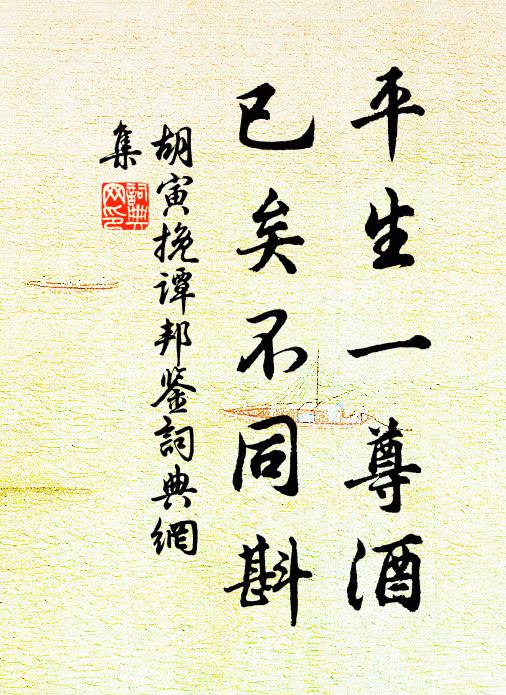 平生一尊酒
已矣不同斟
胡寅挽谭邦鉴詞典網
集
詞典网印